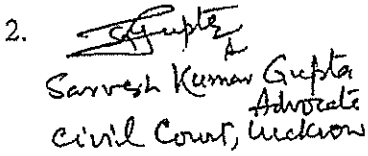 2. SGupta
Sarvesh Kumar Gupta
Advocate
Civil Court, Lucknow